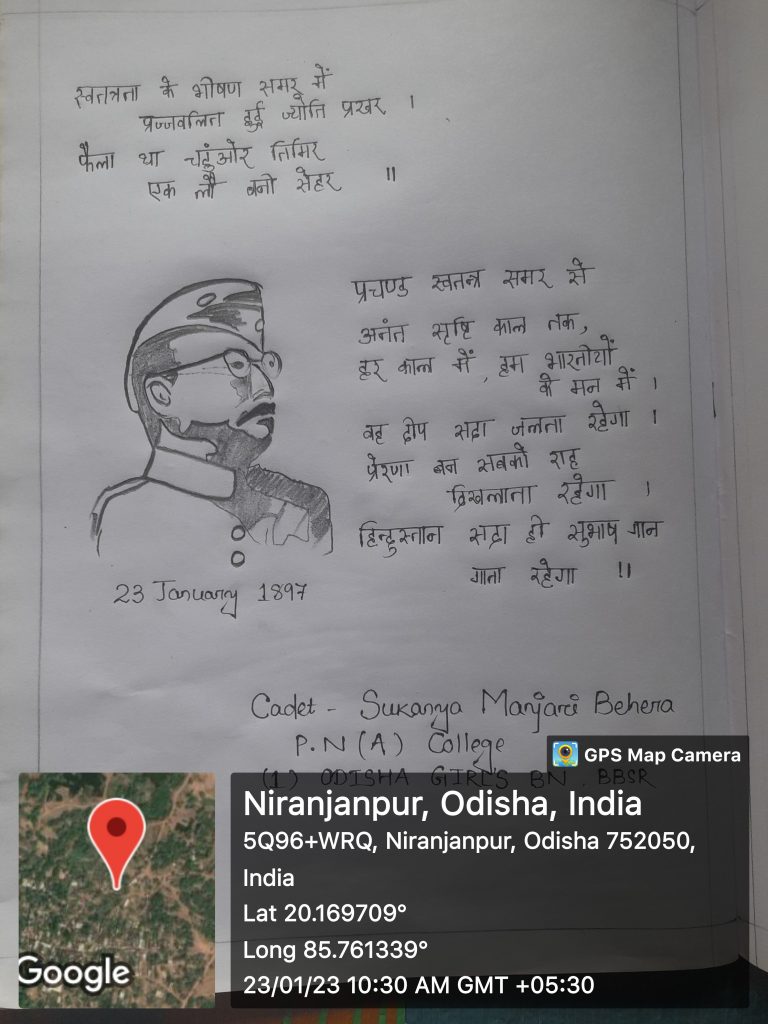 स्वतत्रता के भीषण समर में
प्रज्जवलित हुई ज्योति प्रखर ।
फैला था चहुंओर तिमिर
एक लौ बनी सेहर ॥
प्रचण्ड स्वतन्त्र समर से
अनंत सृष्टि काल तक,
हर काल में, हम भारतीयों
के मन में ।
वह दीप सदा जलता रहेगा ।
प्रेरणा बन सबको राह
दिखलाता रहेगा ।
हिन्दुस्तान सदा ही सुभाष गान
गाता रहेगा !!
23 January 1897
Cadet - Sukanya Manjari Behera
P.N (A) College
(1) ODISHA GIRL'S BN. BBSR
GPS Map Camera
Niranjanpur, Odisha, India
5Q96+WRQ, Niranjanpur, Odisha 752050,
India
Lat 20.169709°
Long 85.761339°
23/01/23 10:30 AM GMT +05:30
Google